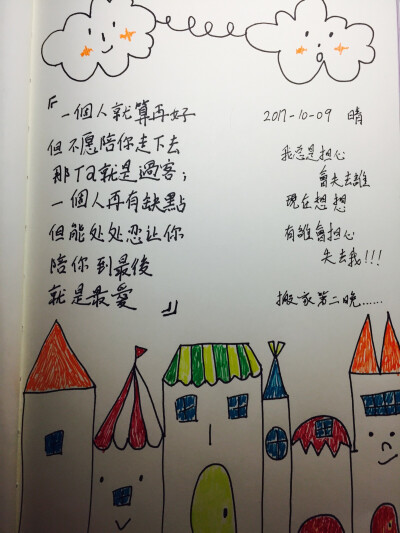 『一個人就算再好
但不愿陪你走下去
那Ta就是過客；
一個人再有缺點
但能处处忍让你
陪你到最後
就是最愛 』
2017-10-09 晴
我总是担心
會失去誰
現在想想
有誰會担心
失去我!!!
搬家第二晚......